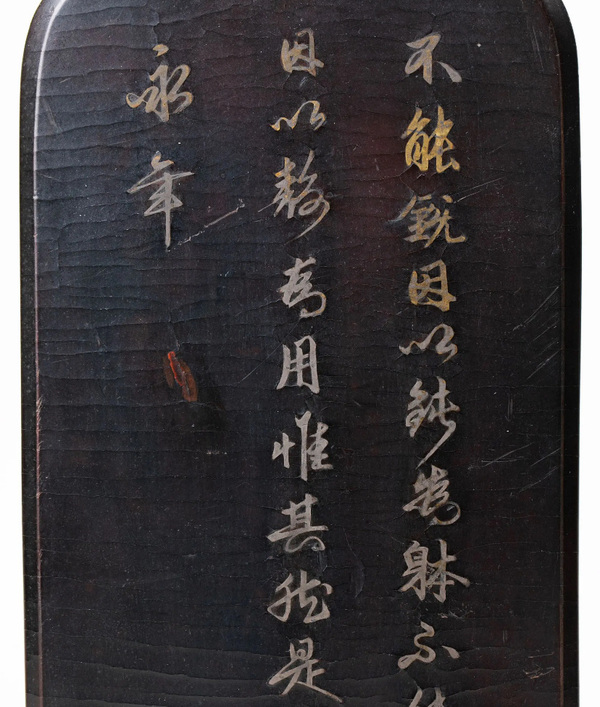 不能銳因以鈍為躰不
因以靜為用惟其然是
永年